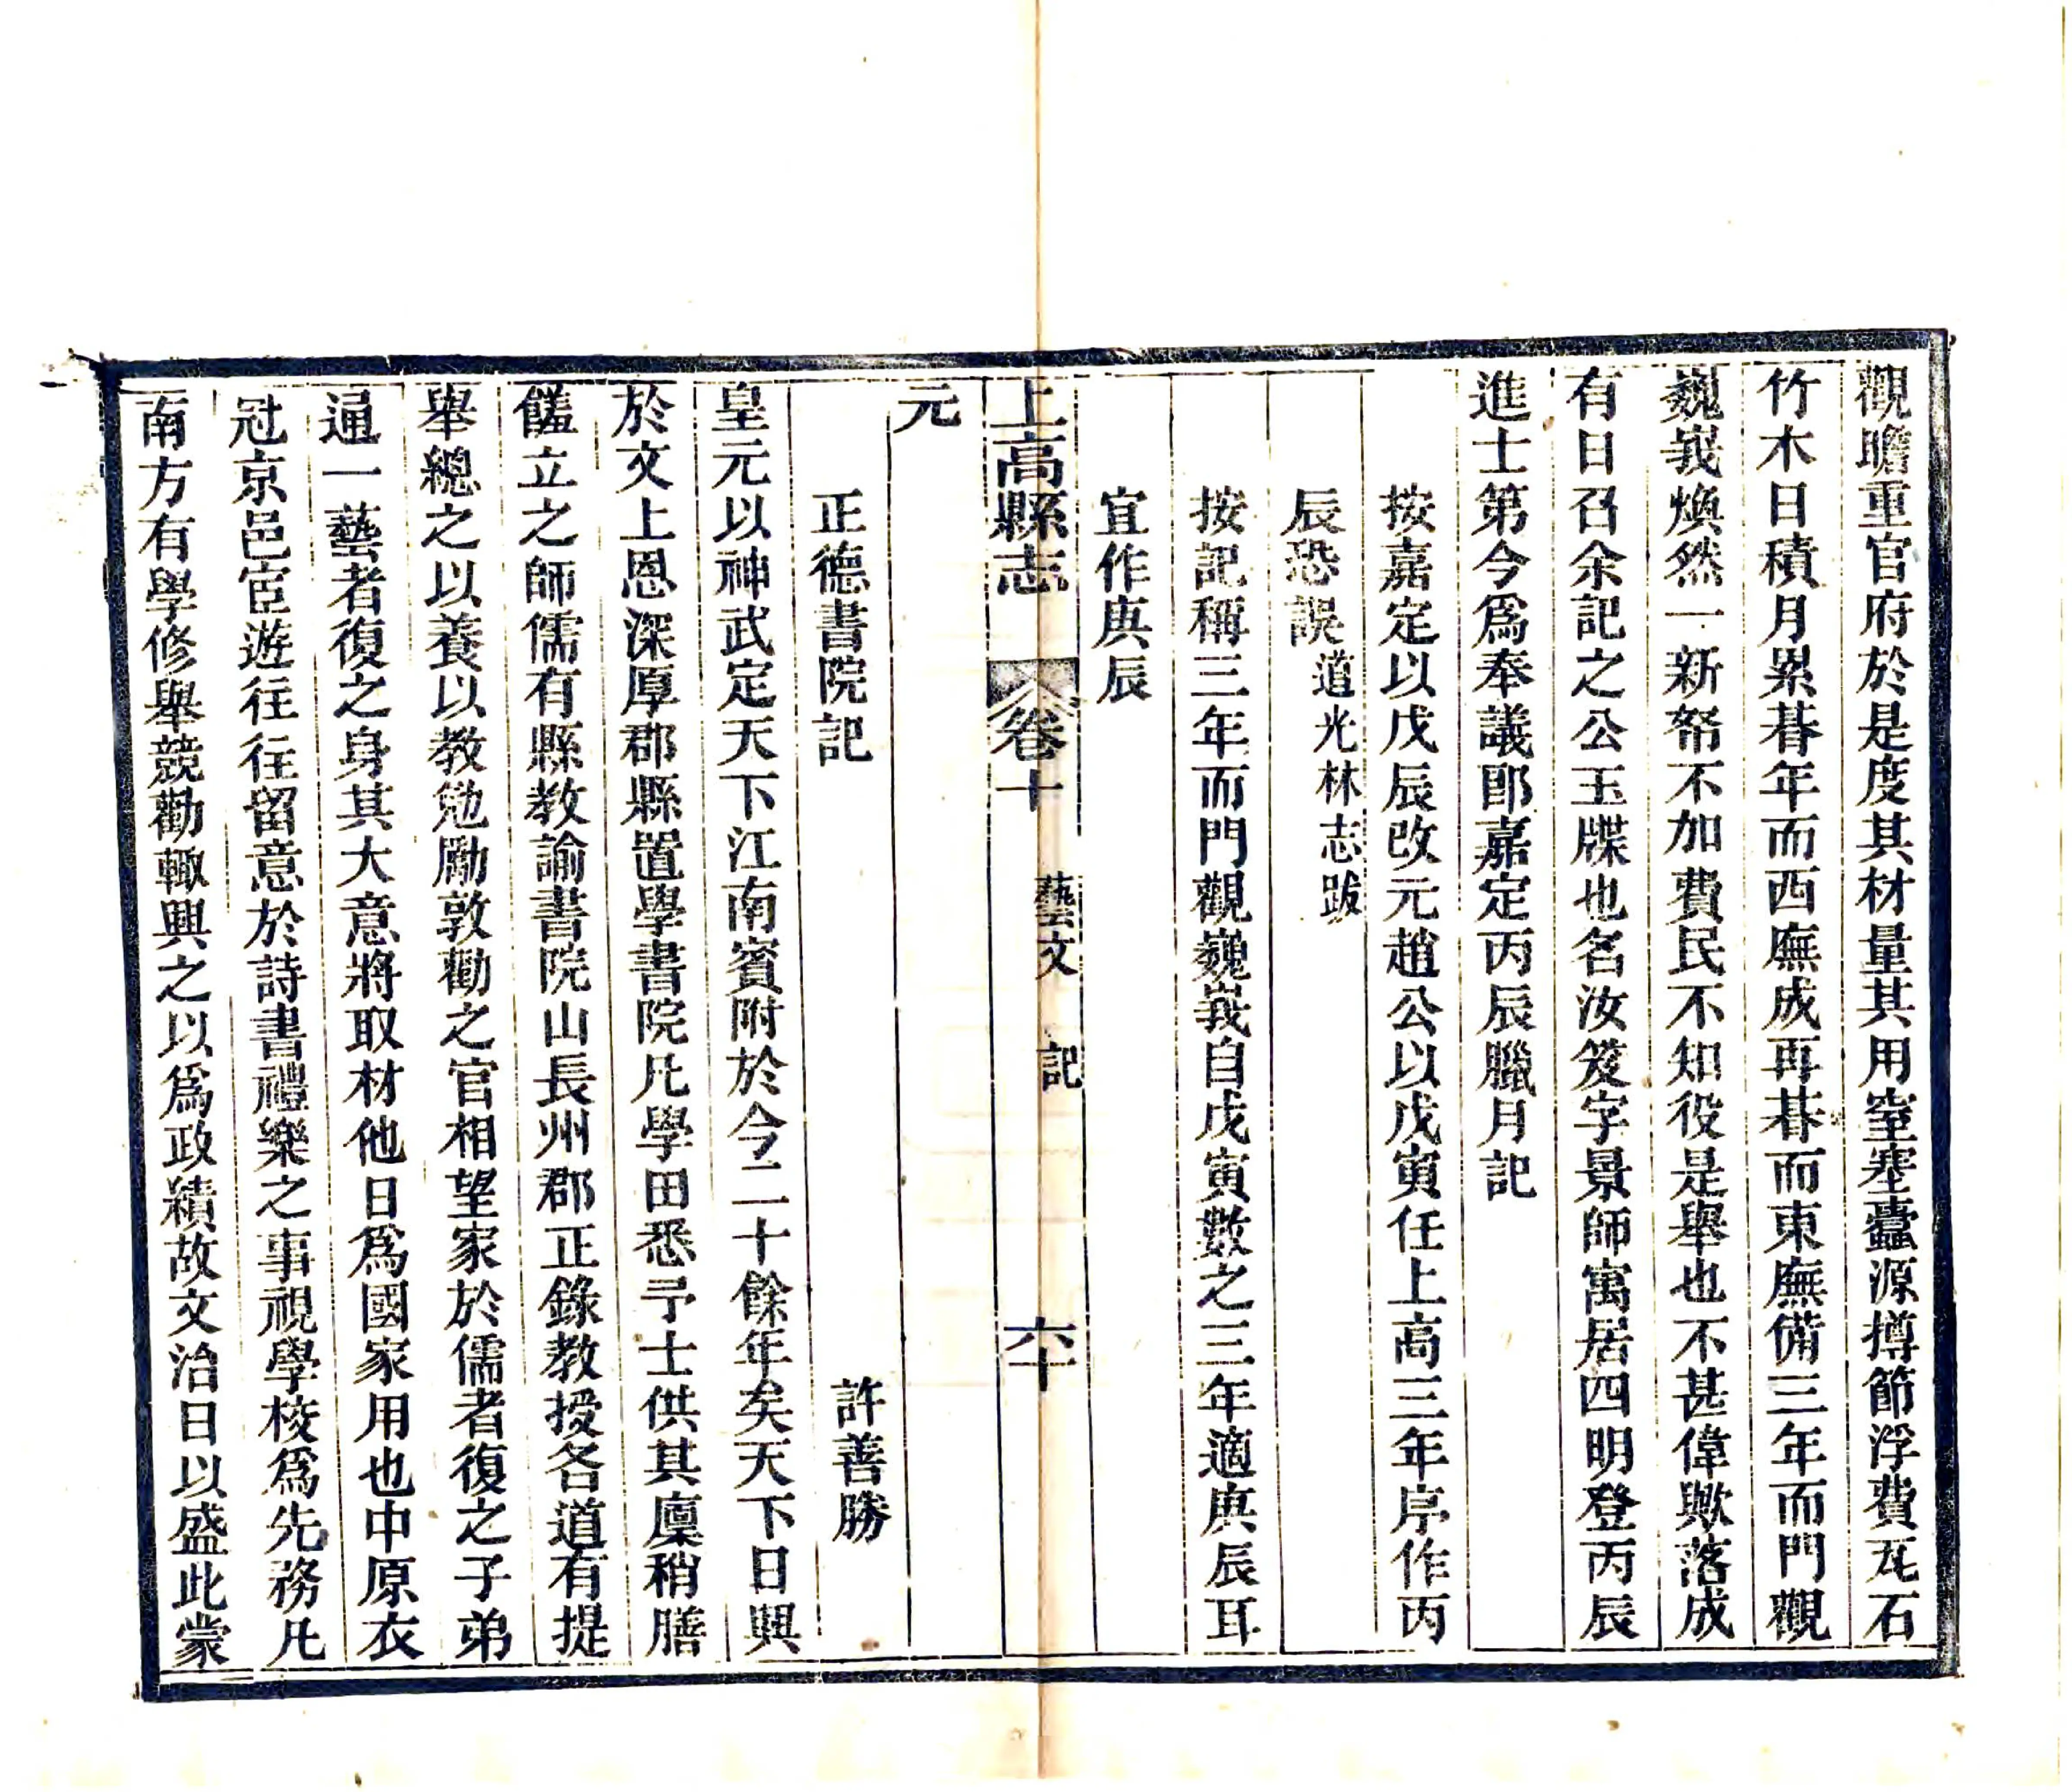 觀瞻重官府於是度其材量其用窒塞蠹源撙節浮費瓦石
竹木日積月累朞年而西廡成再朞而東廡備三年而門觀
巍峩煥然一新帑不加費民不知役是舉也不甚偉歟落成
有日召余記之公玉牒也名汝笈字景師寓居四明登丙辰
進士第今爲奉議郎嘉定丙辰臘月記
按嘉定以戊辰改元趙公以戊寅任上高三年序作丙
辰恐誤道光林志跋
按記稱三年而門觀巍峩自戊寅數之三年適庚辰耳
宜作庚辰
上高縣志 卷十 藝文 記 六十
元
正德書院記 許善勝
皇元以神武定天下江南賓附於今二十餘年矣天下日興
於文上恩深厚郡縣置學書院凡學田悉予士供其廩稍膳
饈立之師儒有縣教諭書院山長州郡正錄教授各道有提
舉總之以養以教勉勵敦勸之官相望家於儒者復之子弟
通一藝者復之身其大意將取材他日爲國家用也中原衣
冠京邑宦遊往往留意於詩書禮樂之事視學校爲先務凡
南方有學修舉競勸輙興之以爲政績故文治日以盛此蒙